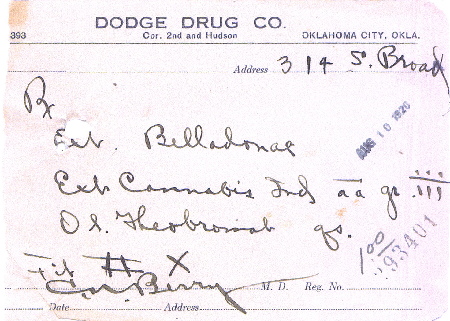 DODGE DRUG CO.
393 Cor. 2nd and Hudson OKLAHOMA CITY, OKLA.
Address 314 S. Broad
Rx
Ext. Belladonae
Ext Cannabis Ind aa gr. iii
Ol. Theobromat qs.
AUG 10 1920
1.00
393401
Ft # X
Berry M. D. Reg. No.
Date Address